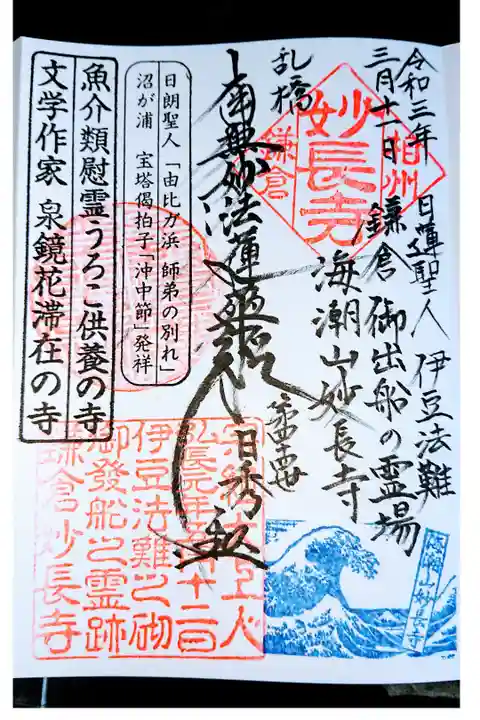 令和三年
三月十一日
相州
妙長寺
鎌倉
乱橋
日蓮聖人 伊豆法難
鎌倉御出船の霊場
海潮山妙長寺
南無妙法蓮華経
日秀
日朗聖人「由比ガ浜 師弟の別れ」
沼が浦 宝塔偈拍子「沖中節」発祥
魚介類慰霊うろこ供養の寺
文学作家 泉鏡花滞在の寺
弘長元年五月十二日
伊豆法難之砌
御發船之霊跡
鎌倉妙長寺
海潮山妙長寺